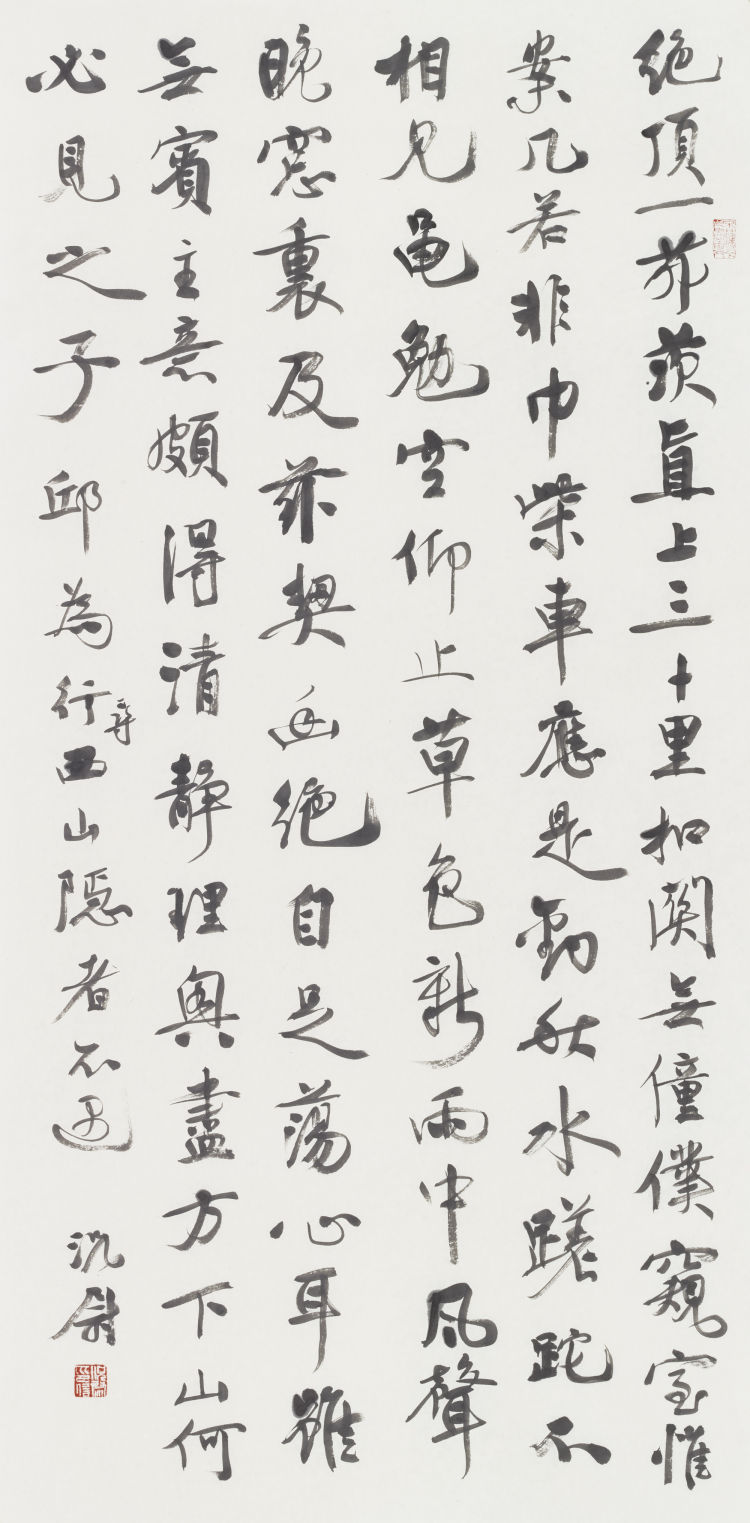 絶頂一茆茨直上三十里扣関無僮僕窺室惟
案几若非巾柴車應是釣秋水蹉跎不
相見黽勉空仰止草色新雨中風聲
晚窓裏及茲契幽絶自足蕩心耳雖
無賓主意頗得清靜理興盡方下山何
必見之子 邱為行尋西山隱者不遇